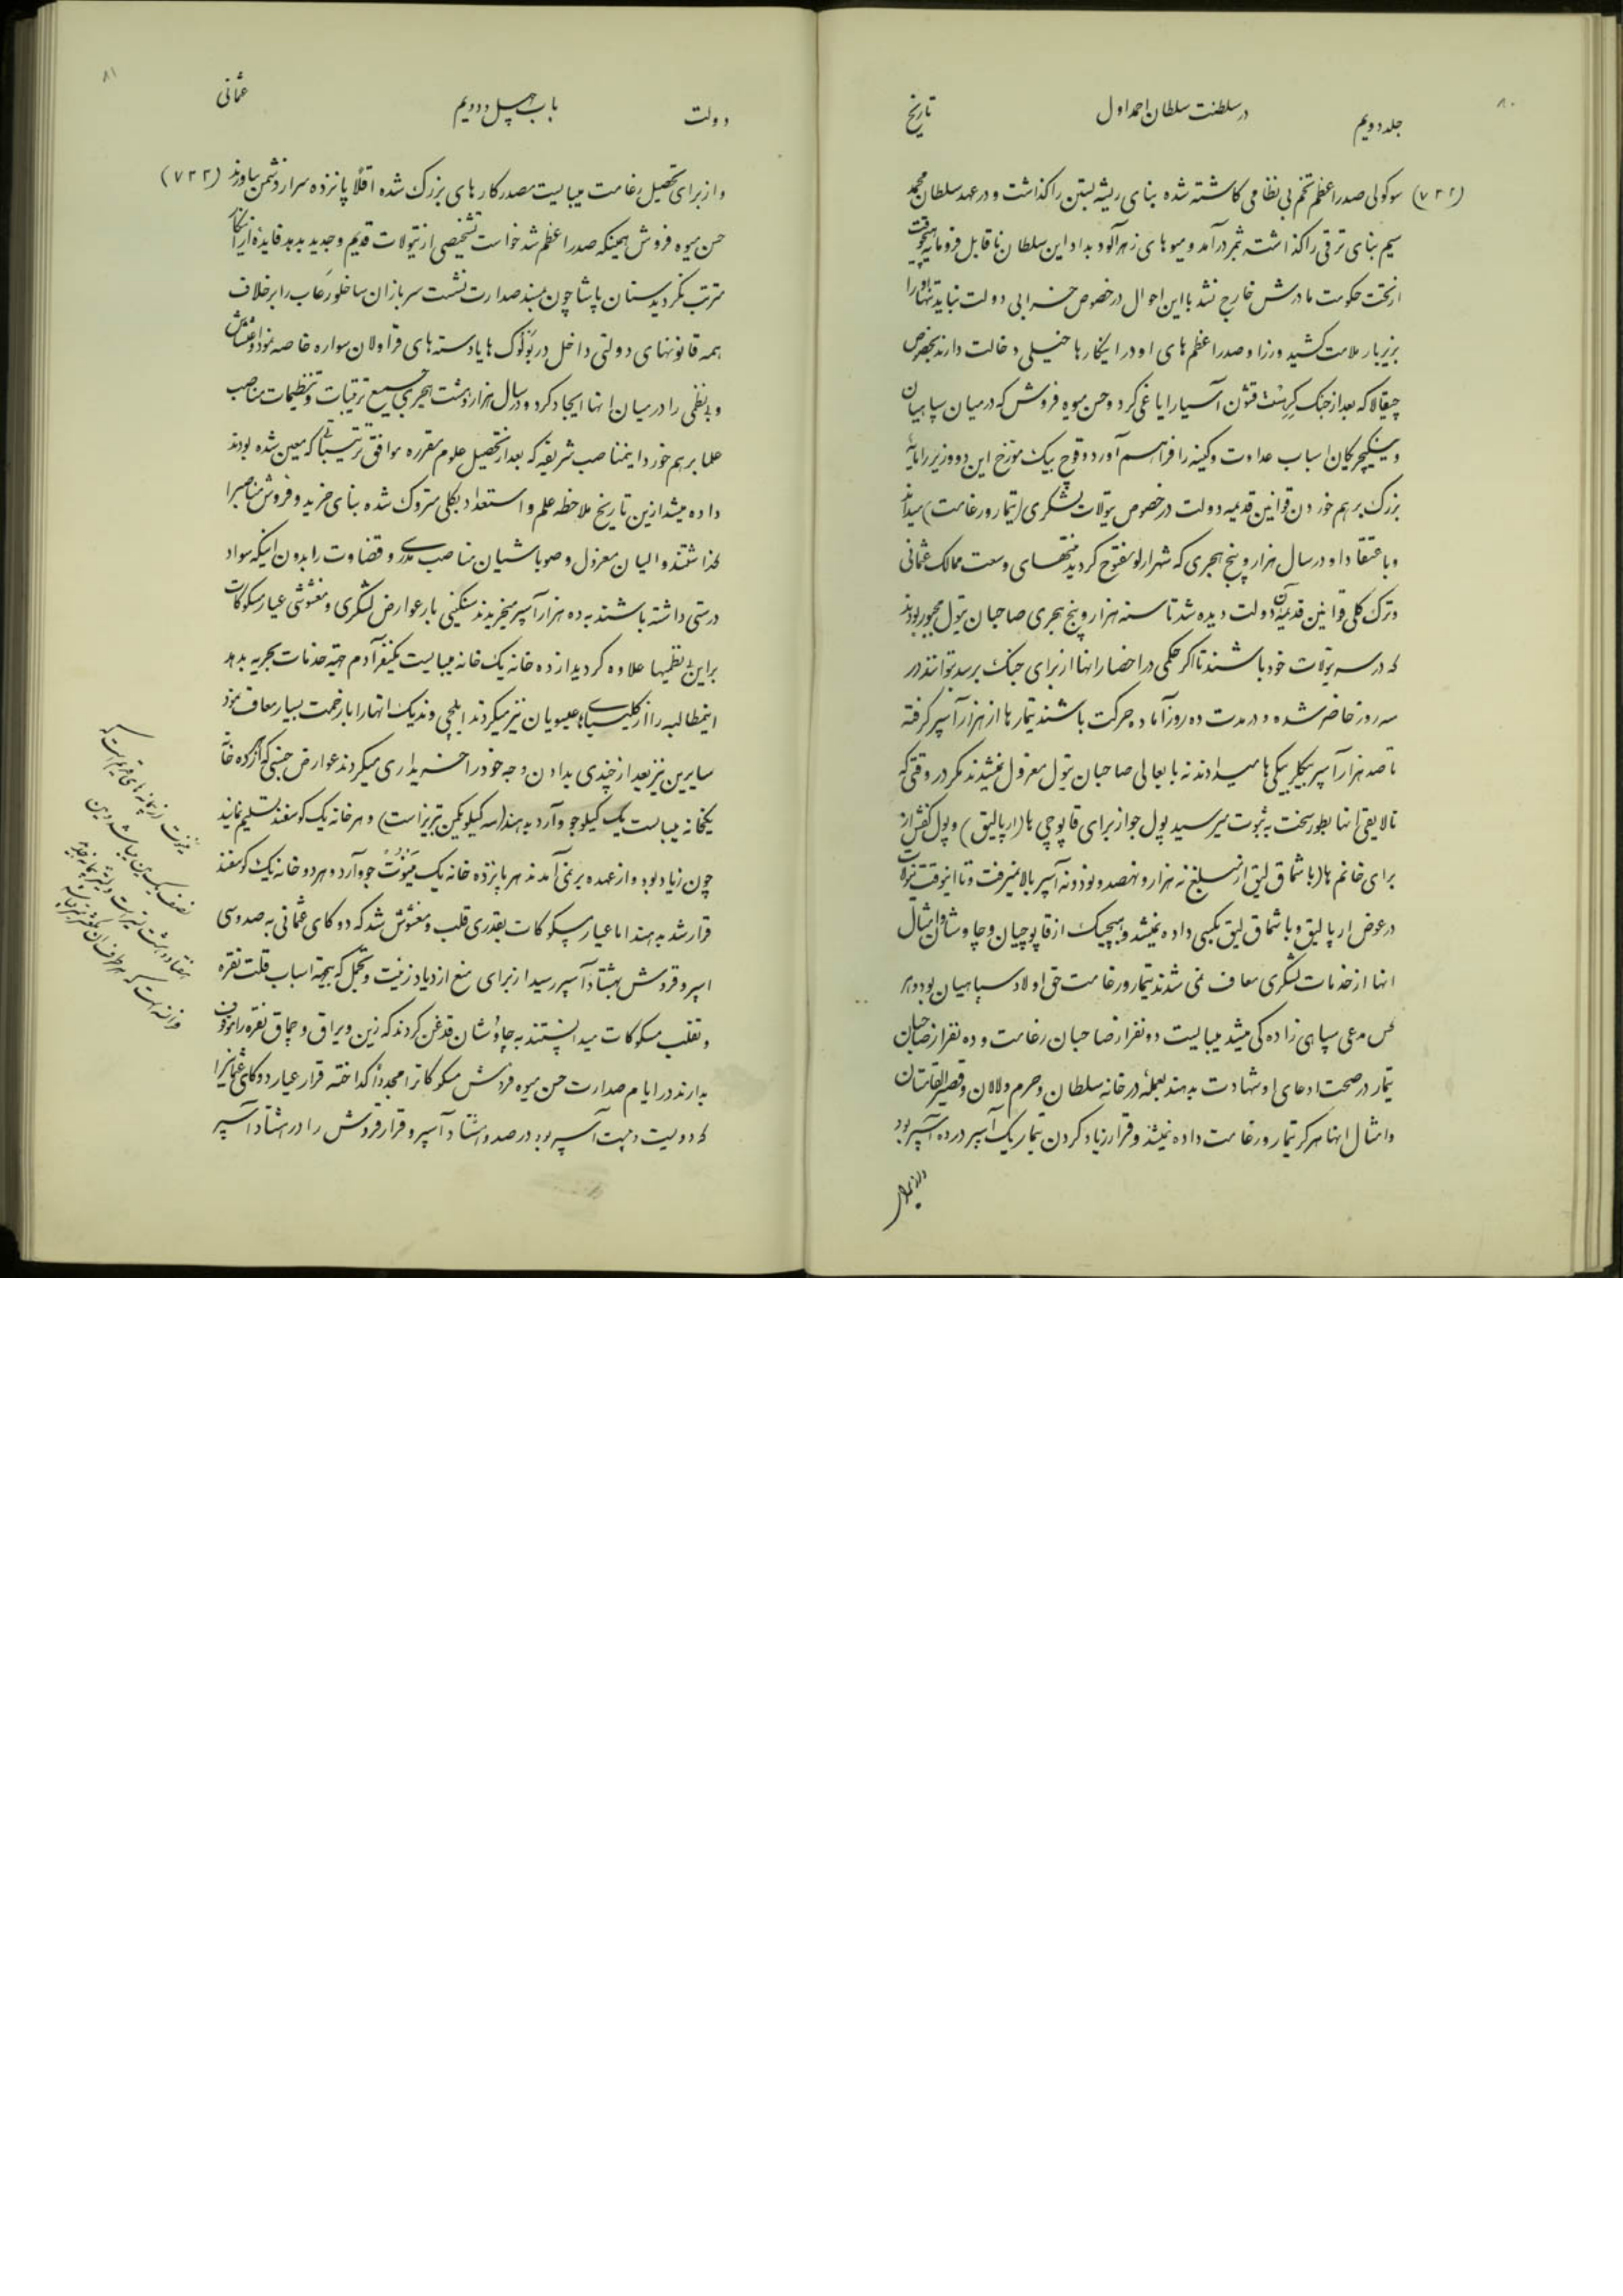 ۸۰
جلد دویم در سلطنت سلطان احمد اول تاریخ
(۷۳۲) سوکولی صدراعظم تخم بی نظامی کاشته شده بنای ریشه بستن را گذاشت و در عهد سلطان محمد
سیم بنای ترقی را گذاشته بثمر در آمد و میوهای زهرآلود بداد این سلطان ناقابل فرومایه هیچوقت
از تحت حکومت مادرش خارج نشد با این احوال در خصوص خرابی دولت نباید تنها او را
بزیر بار ملامت کشید وزرا و صدراعظم های او در اینکارها خیلی دخالت دارند بخصوص
چیقالا که بعد از جنک کرستت قشون آسیا را یاغی کرد و حسن میوه فروش که در میان سپاهیان
و ینکیچریکان اسباب عداوت و کینه را فراهم آورد و قوچ بیک مورخ این دو وزیر را مایهٔ
بزرک برهم خوردن قوانین قدیمه دولت در خصوص تیولات لشکری (تیمار و رغامت) میداند
و باعتقاد او در سال هزار و پنج هجری که شهر ارلو مفتوح کردید منتهای وسعت ممالک عثمانی
و ترک کلی قوانین قدیمهٔ آن دولت دیده شد تا سنه هزار و پنج هجری صاحبان تیول مجبور بودند
که در سر تیولات خود باشند تا اکر حکمی در احضار انها از برای جنک برسد بتوانند در
سه روز حاضر شده و در مدت ده روز آماده حرکت باشند تیمارها از هزار آسپر کرفته
تا صد هزار آسپر بیکلربیکی ها میدادند نه بابعالی صاحبان تیول معزول نمیشدند مکر در وقتی که
نالایقی انها بطور سخت به ثبوت میرسید پول جو از برای قاپوچی ها (ارپالیق) و پول کفش از
برای خانم ها (باشماق لیق) از مبلغ نه هزار و نهصد و نود و نه آسپر بالا نمیرفت و تا انوقت تیولات
در عوض ارپالیق و باشماق لیق بکسی داده نمیشد و هیچیک از قاپوچیان و چاوشان و امثال
انها از خدمات لشکری معاف نمی شدند تیمار و رغامت حق اولاد سپاهیان بود و هر
کس مدعی سپاهی زاده کی میشد میبایست دو نفر از صاحبان رغامت و ده نفر از صاحبان
تیمار در صحت ادعای او شهادت بدهند بعملهٔ در خانه سلطان و حرم و لالان و قصیرالقامتان
و امثال اینها هرکز تیمار و رغامت داده نمیشد و قرار زیاد کردن تیمار یک آسپر در ده آسپر بود
و از برای
۸۱
دولت باب چهل و دویم عثمانی
و از برای تحصیل رغامت میبایست مصدر کارهای بزرک شده اقلاً پانزده سر از دشمن بیاورند (۷۳۳)
حسن میوه فروش همینکه صدراعظم شد خواست تشخیصی از تیولات قدیم و جدید بدهد فایدهٔ از اینکار
مترتب نکردید سنان پاشا چون بمسند صدارت نشست سربازان ساخلو رعاب را برخلاف
همه قانونهای دولتی داخل در بولوک ها یا دسته های قراولان سواره خاصه نمود و اغتشاش
و بی نظمی را در میان انها ایجاد کرد و در سال هزار و هشت هجری جمیع ترتیبات و تنظیمات مناصب
علما برهم خورد اینمناصب شریفه که بعد از تحصیل علوم مقرره موافق ترتیباتی که معین شده بودند
داده میشد از این تاریخ ملاحظه علم و استعداد بکلی متروک شده بنای خرید و فروش مناصب را
کذاشتند والیان معزول و صوباشیان مناصب مدرسی و قضاوت را بدون اینکه سواد
درستی داشته باشند به ده هزار آسپر میخریدند سنکینی بار عوارض لشکری و مغشوشی عیار مسکوکات
بر این بی نظمیها علاوه کردید از ده خانه یک خانه میبایست یکنفر آدم جهة خدمات بحریه بدهد
اینمطالبه را از کلیسیاهای عیسویان نیز میکردند ایلچی وندیک انها را با زحمت بسیار معاف نمود
سایرین نیز بعد از چندی بدادن وجه خود را خریداری میکردند عوارض جنسی که از کرده خانه
یکخانه میبایست یک کیلو جو و آرد بدهند (سه کیلو یکمن تبریز است) و هر خانه یک کوسفند تسلیم نمایند
چون زیاد بود و از عهده بر نمی آمدند هر پانزده خانه یک میزت جو و آرد و هر دو خانه یک کوسفند
قرار شد بدهند اما عیار مسکوکات بقدری قلب و مغشوش شد که دوکای عثمانی به صد و سی
اسپر و قروش بهشتاد آسپر رسید از برای منع ازدیاد زینت و تجمل که بجهة اسباب قلت نقره
و تقلب مسکوکات میدانستند به چاوشان قدغن کردند که زین و یراق و چماق نقره را موقوف
بدارند در ایام صدارت حسن میوه فروش مسکوکات را مجدداً کداخته قرار عیار دوکای عثمانی را
که دویست و بیست آسپر بود در صد و هشتاد آسپر و قرار قروش را در هشتاد آسپر